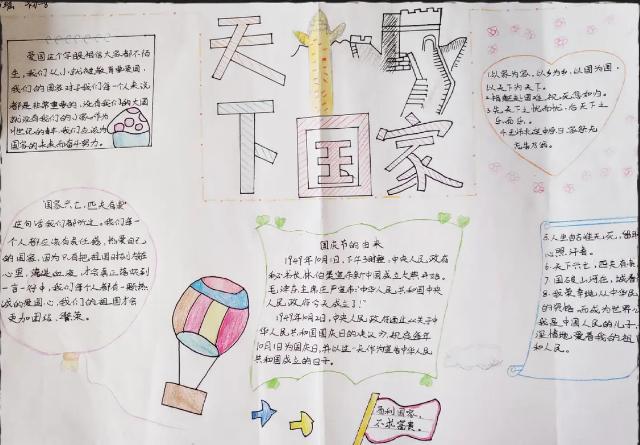 天下
国家
爱国这个字眼相信大家都不陌
生,我们从小就被教育要爱国,
我们的国家对于我们每一个人来说
都是非常重要的,没有我们的大国
就没有我们的小家。作为
国家的未来而奋斗努力。
国家兴亡,匹夫有责
这句话我们都听过。我们每一
个人都应该有责任感,热爱自己
的国家,因为只有把祖国时刻铭记
心里,
一言一行中,我们每个人都有一颗热
诚的爱国心,我们的祖国才会
更加团结、繁荣。
国庆节的由来
1949年10月1日,下午3时,中央人民政府
秘书长林伯渠宣布新中国成立大典开始。
毛泽东主席庄严宣布:“中华人民共和国中央
人民政府今天成立了!”
1949年10月2日,中央人民政府通过《关于中
华人民共和国国庆日的决议》,规定每年
10月1日为国庆日,并以这一天作为宣告中华人民
共和国成立的日子。
1.以家为家,以乡为乡,以国为国,
以天下为天下。
2.捐躯赴国难,视死忽如归。
3.先天下之忧而忧,后天下之
乐而乐。
4.王师北定中原日,家祭无
忘告乃翁。
5.人生自古谁无死,留取
心照汗青。
6.天下兴亡,匹夫有责
7.国破山河在,城春
8.我荣幸地从中华民
的资格,而成为世界公
我是中国人民的儿子,
深情地爱着我的祖
和人民。
苟利国家,
不求富贵。